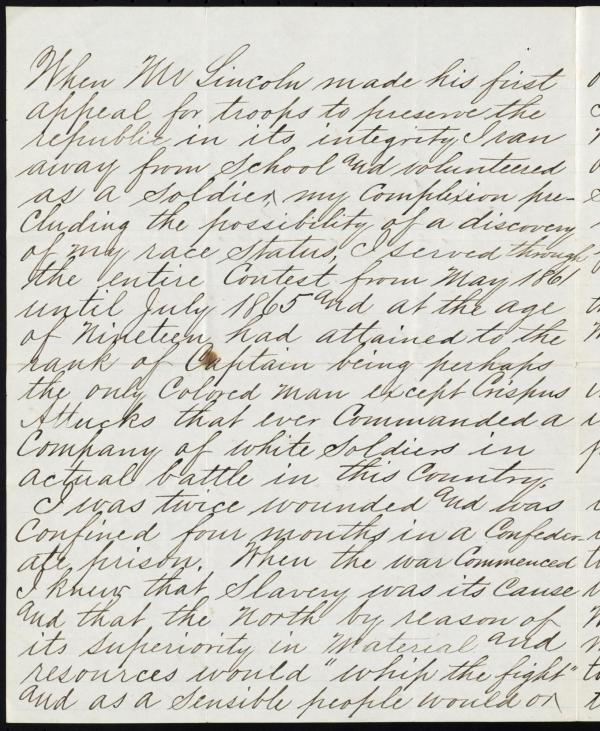 When Mr Lincoln made his first
appeal for troops to preserve the
republic in its integrity, I ran
away from School and volunteered
as a Soldier, my Complexion pre-
cluding the possibility of a discovery
of my race Status, I served through
the entire Contest from May 1861
until July 1865 and at the age
of Nineteen, had attained to the
rank of Captain being perhaps
the only Colored man except Crispus
Attucks that ever Commanded a
Company of white Soldiers in
actual battle in this Country.
I was twice wounded and was
Confined four months in a Confeder-
ate prison. When the war Commenced
I knew that Slavery was its Cause
and that the North by reason of
its Superiority in Material and
resources would "whip the fight"
and as a Sensible people would or